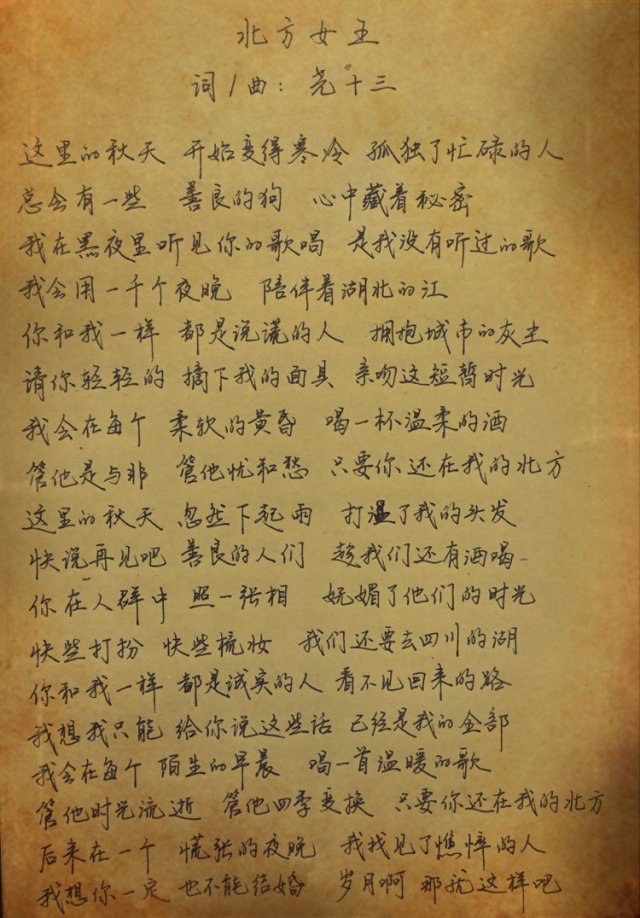 北方女王
词/曲：尧十三
这里的秋天 开始变得寒冷 孤独了忙碌的人
总会有一些 善良的狗 心中藏着秘密
我在黑夜里听见你的歌唱 是我没有听过的歌
我会用一千个夜晚 陪伴着湖北的江
你和我一样 都是说谎的人 拥抱城市的灰尘
请你轻轻的 摘下我的面具 亲吻这短暂时光
我会在每个 柔软的黄昏 喝一杯温柔的酒
管他是与非 管他忧和愁 只要你还在我的北方
这里的秋天 忽然下起雨 打湿了我的头发
快说再见吧 善良的人们 趁我们还有酒喝
你在人群中 照一张相 妩媚了他们的时光
快些打扮 快些梳妆 我们还要去四川的湖
你和我一样 都是诚实的人 看不见回来的路
我想我只能 给你说这些话 已经是我的全部
我会在每个 陌生的早晨 喝一首温暖的歌
管他时光流逝 管他四季变换 只要你还在我的北方
后来在一个 慌张的夜晚 我找见了憔悴的人
我想你一定 也不能结婚 岁月啊 那就这样吧